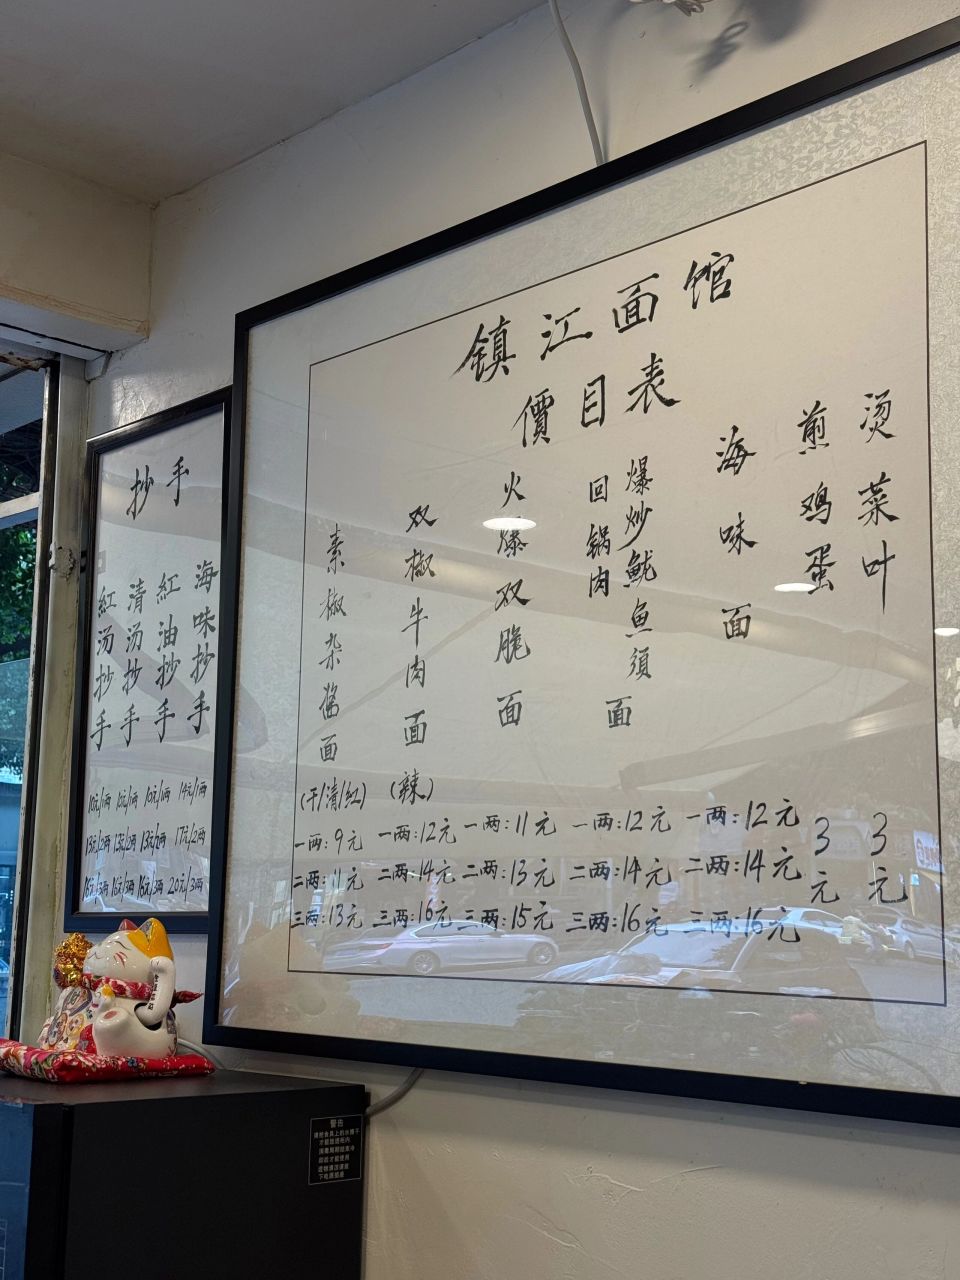 镇江面馆
價目表
素椒杂酱面
(干/清/红)
一两:9元
二两:11元
三两:13元
双椒牛肉面
(辣)
一两:12元
二两:14元
三两:16元
火爆双脆面
一两:11元
二两:13元
三两:15元
回锅肉
爆炒鱿鱼须
面
一两:12元
二两:14元
三两:16元
海味面
一两:12元
二两:14元
三两:16元
煎鸡蛋
3元
烫菜叶
3元
抄手
紅汤抄手
10元/1两
13元/2两
16元/3两
清汤抄手
10元/1两
13元/2两
16元/3两
紅油抄手
10元/1两
13元/2两
16元/3两
海味抄手
14元/1两
17元/2两
20元/3两
警告